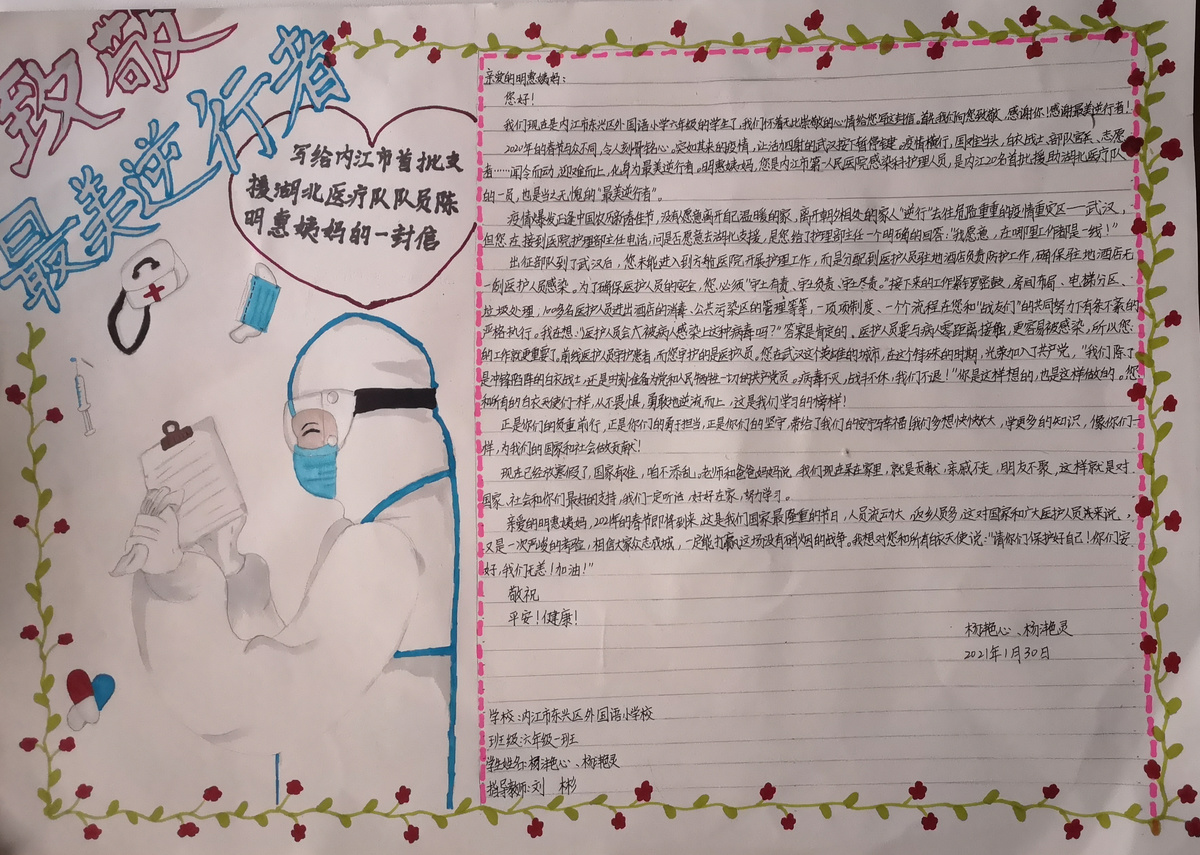 致敬
最美逆行者
写给内江市首批支
援湖北医疗队队员陈
明惠姨妈的一封信
亲爱的明惠姨妈：
您好！
我们现在是内江市东兴区外国语小学六年级的学生了，我们怀着无比崇敬的心情给您写这封信。首先我们向您致敬，感谢你！感谢最美逆行者！
2020年的春节与众不同，令人刻骨铭心。突如其来的疫情，让活力四射的武汉按下暂停键，疫情横行，国难当头，白衣战士、部队官兵、志愿
者……闻令而动，迎难而上，化身为最美逆行者。明惠姨妈，您是内江市第一人民医院感染科护理人员，是内江20名首批援助湖北医疗队
的一员，也是当之无愧的“最美逆行者”。
疫情爆发正逢中国农历新春佳节，没有人愿意离开自己温暖的家，离开朝夕相处的家人“逆行”去往危险重重的疫情重灾区——武汉，
但您在接到医院护理部主任电话，问是否愿意去湖北支援，是您给了护理部主任一个明确的回答：“我愿意，在哪里工作都是一线！”
出征部队到了武汉后，您未能进入到方舱医院开展护理工作，而是分配到医护人员驻地酒店负责防护工作，确保驻地酒店无
一例医护人员感染。为了确保医护人员的安全，您必须“守土有责、守土负责、守土尽责。”接下来的工作紧锣密鼓，房间布局、电梯分区、
垃圾处理，100多名医护人员进出酒店的消毒、公共污染区的管理等等，一项项制度、一个个流程在您和“战友们”的共同努力下有条不紊的
严格执行。我在想：“医护人员会不会被病人感染上这种病毒吗？”答案是肯定的。医护人员要与病人零距离接触，更容易被感染，所以您
的工作就更重要了，前线医护人员守护患者，而您守护的是医护人员。您在武汉这个英雄的城市，在这个特殊的时期，光荣加入了共产党，“我们除了
是冲锋陷阵的白衣战士，还是时刻准备为党和人民牺牲一切的共产党员。病毒不灭，战斗不休，我们不退！”你是这样想的，也是这样做的。您
和所有的白衣天使们一样，从不畏惧，勇敢地逆流而上，这是我们学习的榜样！
正是你们的负重前行，正是你们的勇于担当，正是你们的坚守，带给了我们的安宁与幸福！我们多想快快长大，学更多的知识，像你们一
样，为我们的国家和社会做贡献！
现在已经放寒假了，国家有难，咱不添乱，老师和爸爸妈妈说，我们现在呆在家里，就是贡献，亲戚不走，朋友不聚，这样就是对
国家、社会和你们最好的支持，我们一定听话，好好在家，努力学习。
亲爱的明惠姨妈，2021年的春节即将到来，这是我们国家最隆重的节日，人员流动大，返乡人员多，这对国家和广大医护人员来说，
又是一次严峻的考验，相信大家众志成城，一定能打赢这场没有硝烟的战争。我想对您和所有白衣天使说：“请你们保护好自己！你们安
好，我们无恙！加油！”
敬祝
平安！健康！
杨滟心、杨滟灵
2021年1月30日
学校：内江市东兴区外国语小学校
班级：六年级一班
学生姓名：杨滟心、杨滟灵
指导教师：刘 彬